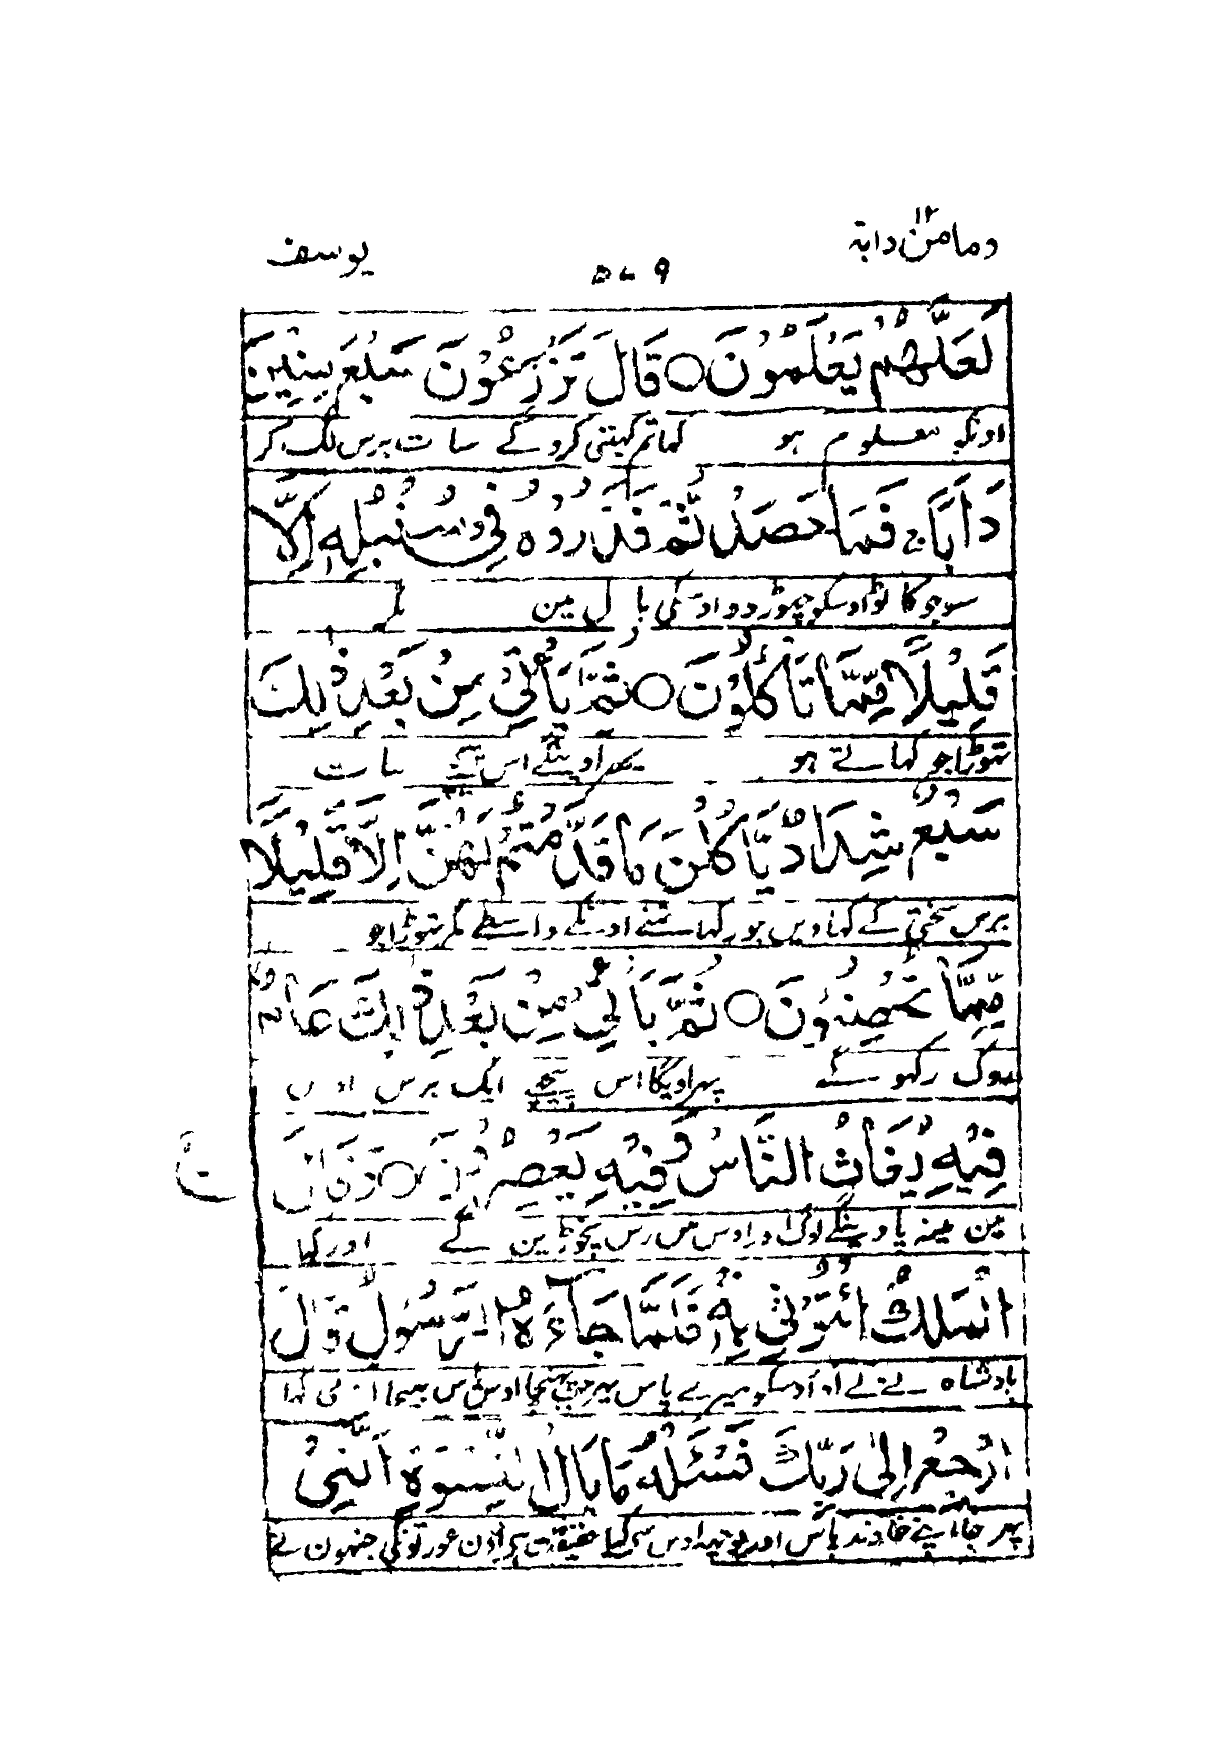 وما من دابة ١٢
٥٧٩
يوسف
لَعَلَّهُمْ يَعْلَمُوْنَ ○ قَالَ تَزْرَعُوْنَ سَبْعَ سِنِيْنَ
اونکو معلوم ہو کہا تم کہیتی کروگے سات برس لگ کر
دَاَبًا ج فَمَا حَصَدْتُّمْ فَذَرُوْهُ فِيْ سُنْبُلِهٖ اِلَّا
سو جو کاٹو اوسکو چھوڑ دو اوسکی بال مین مگر
قَلِيْلًا مِّمَّا تَاْكُلُوْنَ ○ ثُمَّ يَاْتِيْ مِنْ بَعْدِ ذٰلِكَ
تہوڑا جو کہاتے ہو پھر اوینگے اس پیچھے سات
سَبْعٌ شِدَادٌ يَّاْكُلْنَ مَا قَدَّمْتُمْ لَهُنَّ اِلَّا قَلِيْلًا
برس سختی کے کھاویں جو رکہا تمنے اونکے واسطے مگر تہوڑا جو
مِّمَّا تُحْصِنُوْنَ ○ ثُمَّ يَاْتِيْ مِنْ بَعْدِ ذٰلِكَ عَامٌ
روک رکہوگے پہر اویگا اس پیچھے ایک برس اوس
فِيْهِ يُغَاثُ النَّاسُ وَفِيْهِ يَعْصِرُوْنَ ○ وَقَالَ
مین مینہ پاوینگے لوگ اور اوس میں رس نچوڑین گے اور کہا
الْمَلِكُ ائْتُوْنِيْ بِهٖ فَلَمَّا جَآءَهُ الرَّسُوْلُ قَالَ
بادشاہ نے لے آو اوسکو میرے پاس پہر جب پہنچا اوس پاس بہیجا آدمی کہا
ارْجِعْ اِلٰى رَبِّكَ فَسْئَلْهُ مَا بَالُ النِّسْوَةِ الّٰتِيْ
پہر جا اپنے خاوند پاس اور پوچہہ اوس سی کیا حقیقت ہی اون عورتونکی جنہون نے